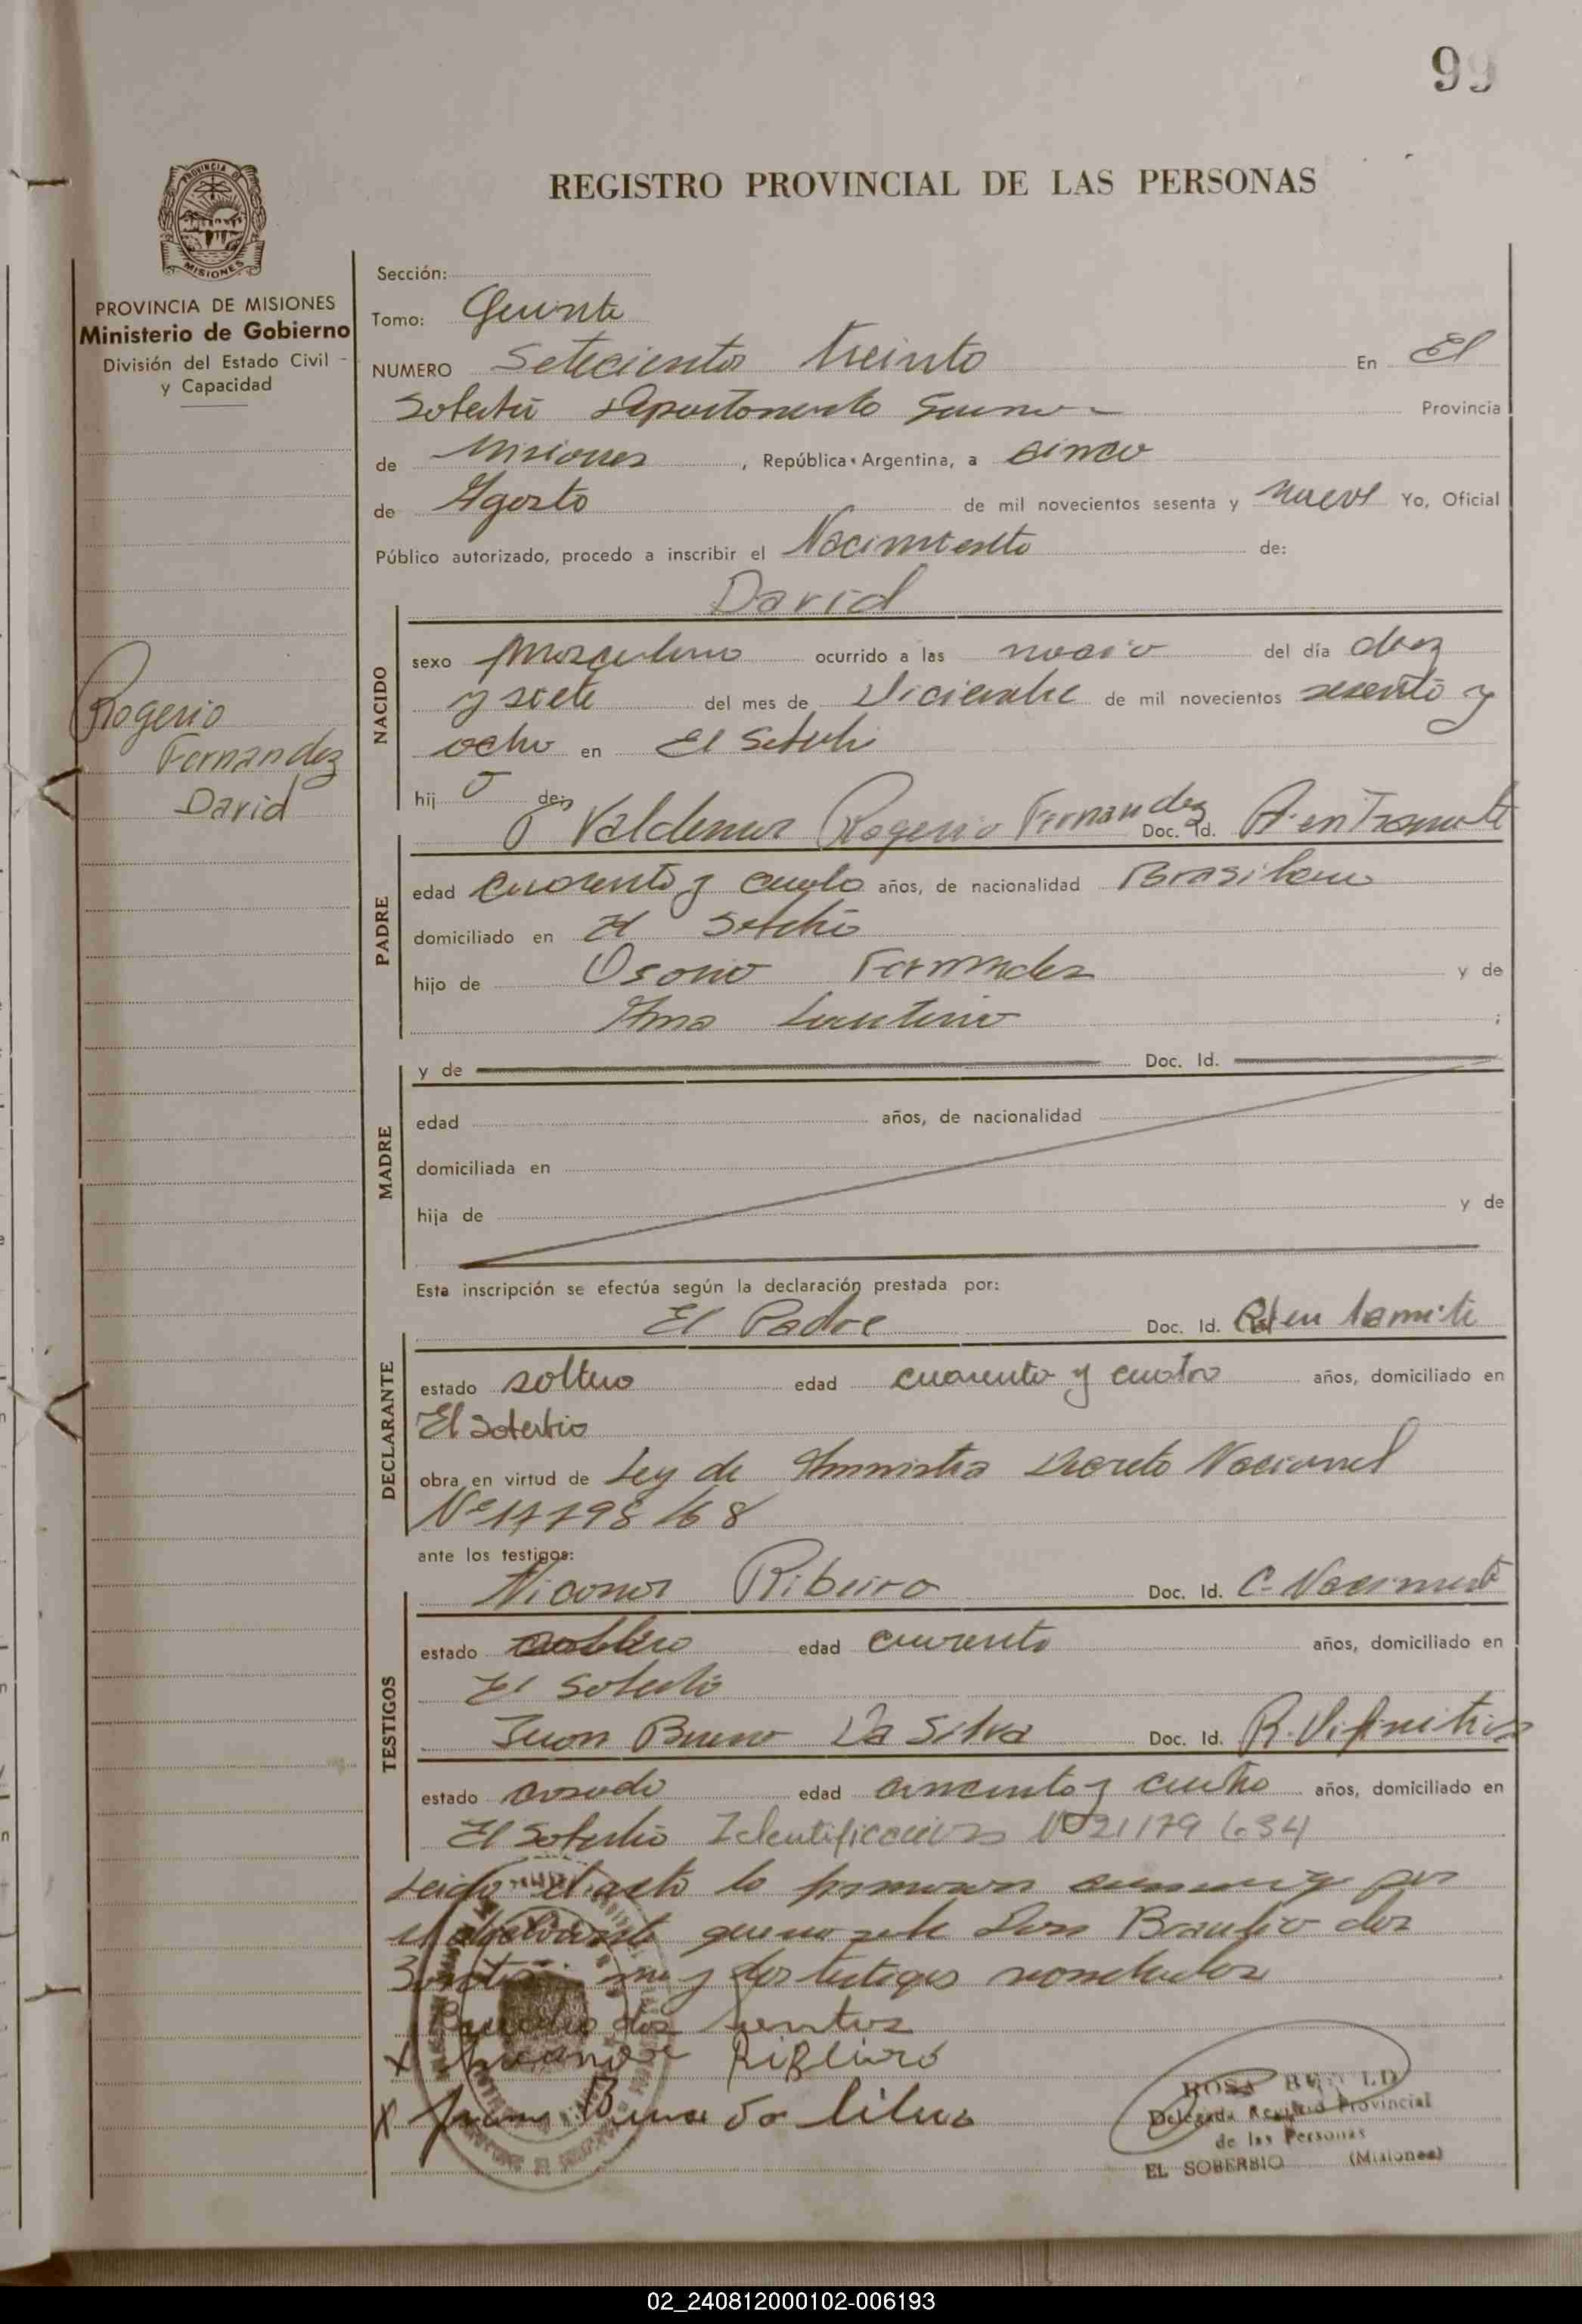 99
PROVINCIA DE
MISIONES
REGISTRO PROVINCIAL DE LAS PERSONAS
PROVINCIA DE MISIONES
Ministerio de Gobierno
División del Estado Civil
y Capacidad
Rogerio
Fernandez
David
Sección:
Tomo: Quinto
NUMERO Setecientos treinta En El
Soberbio departamento Provincia
de Misiones, República Argentina, a cinco
de Agosto de mil novecientos sesenta y nueve Yo, Oficial
Público autorizado, procedo a inscribir el Nacimiento de:
David
NACIDO
sexo Masculino ocurrido a las del día diez
y siete del mes de Diciembre de mil novecientos sesenta y
ocho en El Soberbio
hij o de:
Valdemar Rogerio Fernandez Doc. Id. en Tramite
PADRE
edad cuarenta y cuatro años, de nacionalidad Brasilero
domiciliado en El Soberbio
hijo de Osorio Fernandez y de
Ana ;
MADRE
y de Doc. Id.
edad años, de nacionalidad
domiciliada en
hija de y de
Esta inscripción se efectúa según la declaración prestada por:
El Padre Doc. Id. en tramite
DECLARANTE
estado soltero edad cuarenta y cuatro años, domiciliado en
El Soberbio
obra en virtud de Ley de Amnistia Decreto Nacional
Nº 17798/68
ante los testigos:
Nicanor Ribeiro Doc. Id. C. Nacimiento
TESTIGOS
estado soltero edad cuarenta años, domiciliado en
El Soberbio
Juan Bueno Da Silva Doc. Id. R. Difinitiva
estado casado edad cincuenta y cuatro años, domiciliado en
El Soberbio Identificacion Nº 21179634
Leido el acto lo firmaron conmigo por
el declarante que no sabe Don Braulio dos
Santos y los testigos nombrados
Braulio dos Santos
x Nicanor Ribeiro
x Juan Bueno da Silva
ROSA
Delegada Registro Provincial
de las Personas
EL SOBERBIO (Misiones)
02_240812000102-006193